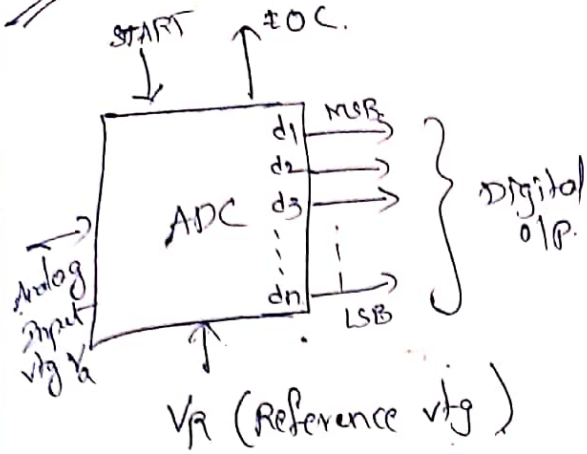 START
EOC.
d1 MSB
d2
d3
ADC
dn
LSB
Digital
O/P.
Analog
Input
vtg Va
VR (Reference vtg)